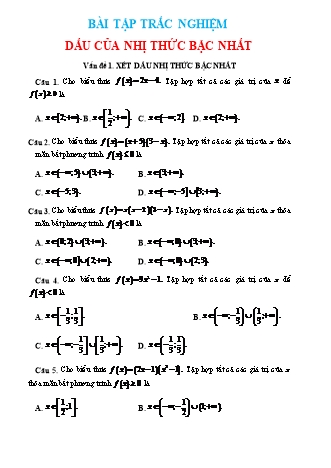 BÀI TẬP TRẮC NGHIỆM
DẤU CỦA NHỊ THỨC BẬC NHẤT
Vấn đề 1. XÉT DẤU NHỊ THỨC BẬC NHẤT
Câu 1. Cho biểu thức f(x)=2x-4. Tập hợp tất cả các giá trị của x để
f(x)≥0 là
A. x∈[2;+∞). B. x∈[1/2;+∞). C. x∈(-∞;2]. D. x∈(2;+∞).
Câu 2. Cho biểu thức f(x)=(x+5)(3-x). Tập hợp tất cả các giá trị của x thỏa
mãn bất phương trình f(x)≤0 là
A. x∈(-∞;5)∪(3;+∞). B. x∈(3;+∞).
C. x∈(-5;3). D. x∈(-∞;-5]∪[3;+∞).
Câu 3. Cho biểu thức f(x)=x(x-2)(3-x). Tập hợp tất cả các giá trị của x thỏa
mãn bất phương trình f(x)<0 là
A. x∈(0;2)∪(3;+∞). B. x∈(-∞;0)∪(3;+∞).
C. x∈(-∞;0]∪(2;+∞). D. x∈(-∞;0)∪(2;3).
Câu 4. Cho biểu thức f(x)=9x²-1. Tập hợp tất cả các giá trị của x để
f(x)<0 là
A. x∈[-1/3;1/3]. B. x∈(-∞;-1/3)∪(1/3;+∞).
C. x∈(-∞;-1/3]∪[1/3;+∞). D. x∈(-1/3;1/3).
Câu 5. Cho biểu thức f(x)=(2x-1)(x³-1). Tập hợp tất cả các giá trị của x
thỏa mãn bất phương trình f(x)≥0 là
A. x∈[1/2;1]. B. x∈(-∞;-1/2)∪(1;+∞).